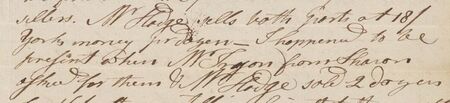 sellers. Mr Hodge sells both sorts at 18/
York money pr dozen — I happened to be
present when Mr from Sharon
asked for them & Mr Hodge sold 2 dozen